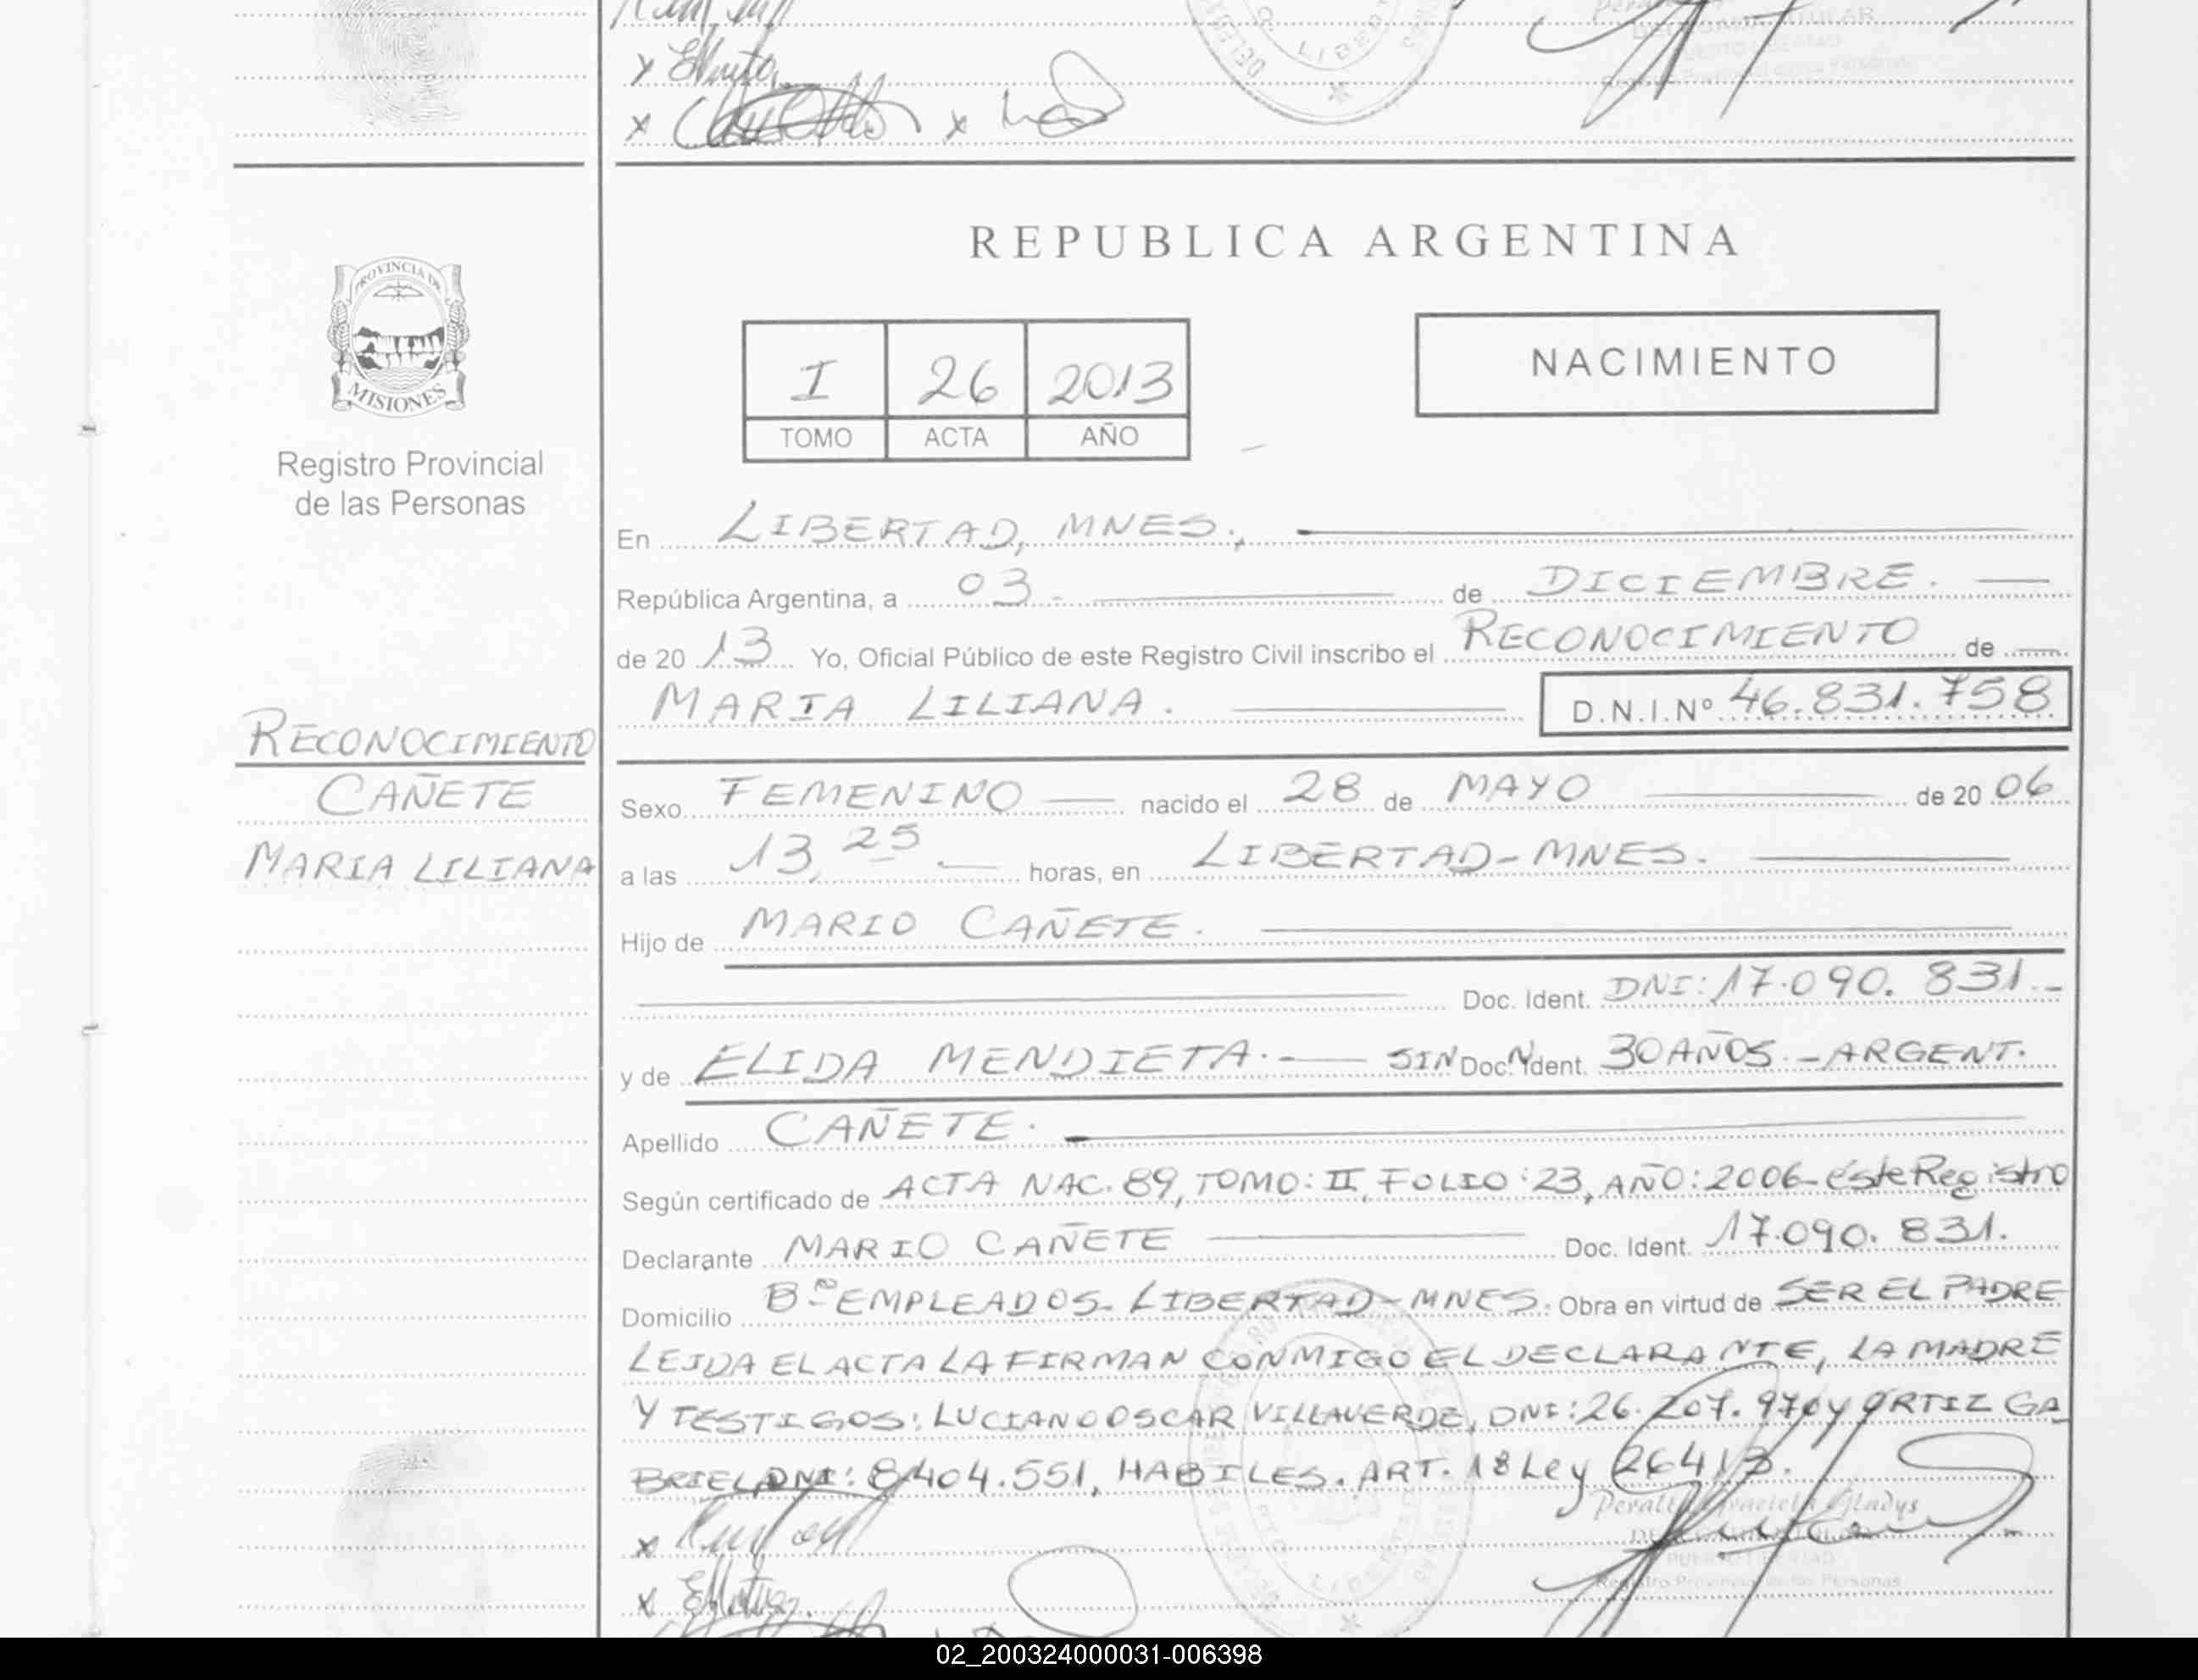 LIBERT
REPUBLICA ARGENTINA
PROVINCIA DE
MISIONES
Registro Provincial
de las Personas
I 26 2013
TOMO ACTA AÑO
NACIMIENTO
En LIBERTAD, MNES.,
República Argentina, a 03. de DICIEMBRE.
de 20 13 Yo, Oficial Público de este Registro Civil inscribo el RECONOCIMIENTO de
MARIA LILIANA. D.N.I.Nº 46.831.758
RECONOCIMIENTO
CAÑETE
MARIA LILIANA
Sexo FEMENINO nacido el 28 de MAYO de 20 06
a las 13,25 horas, en LIBERTAD-MNES.
Hijo de MARIO CAÑETE.
Doc. Ident. DNI: 17.090.831.-
y de ELIDA MENDIETA.- SIN DNI Doc. Ident. 30 AÑOS.-ARGENT.
Apellido CAÑETE.
Según certificado de ACTA NAC. 89, TOMO: II, FOLIO: 23, AÑO: 2006- éste Registro
Declarante MARIO CAÑETE Doc. Ident. 17.090.831.
Domicilio Bº EMPLEADOS- LIBERTAD-MNES. Obra en virtud de SER EL PADRE
LEIDA EL ACTA LA FIRMAN CONMIGO EL DECLARANTE, LA MADRE
Y TESTIGOS: LUCIANO OSCAR VILLAVERDE, DNI: 26.207.970 y ORTIZ GA
BRIEL DNI: 8.404.551, HABILES. ART. 18 Ley 26413.
Peralta Graciela Gladys
PUERTO LIBERTAD
Registro Provincial de las Personas
02_200324000031-006398